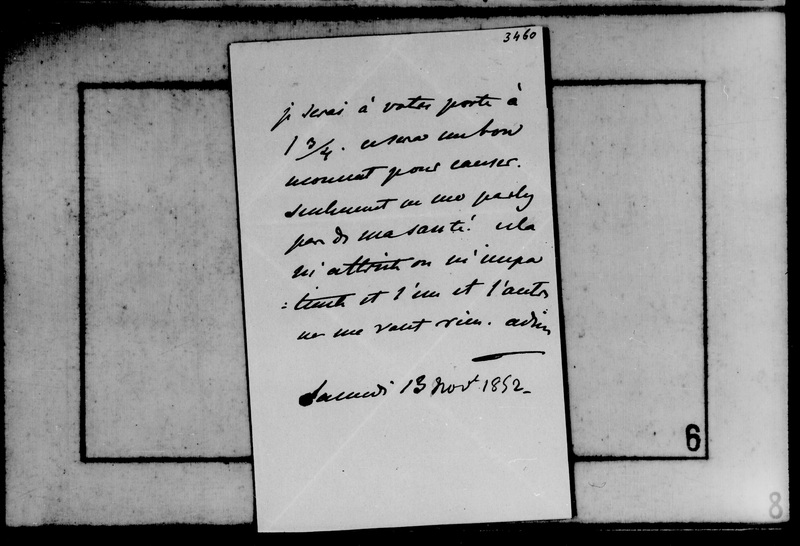 3460
je serai à votre porte à
1 3/4. ce sera un bon
moment pour causer.
seulement ne me parlez
pas de ma santé. cela
m'attriste ou m'impa
:tiente et l'un et l'autre
ne me vaut rien. adieu
Samedi 13 Nov. 1852_
6
8